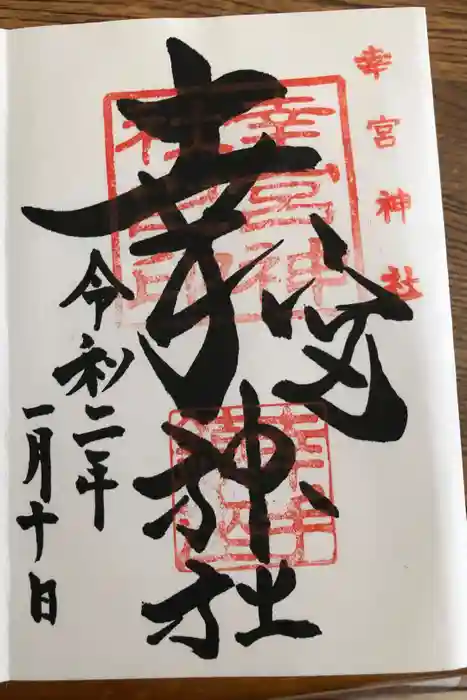 幸宮神社
幸宮神社
令和二年
一月十日
幸宮神社印